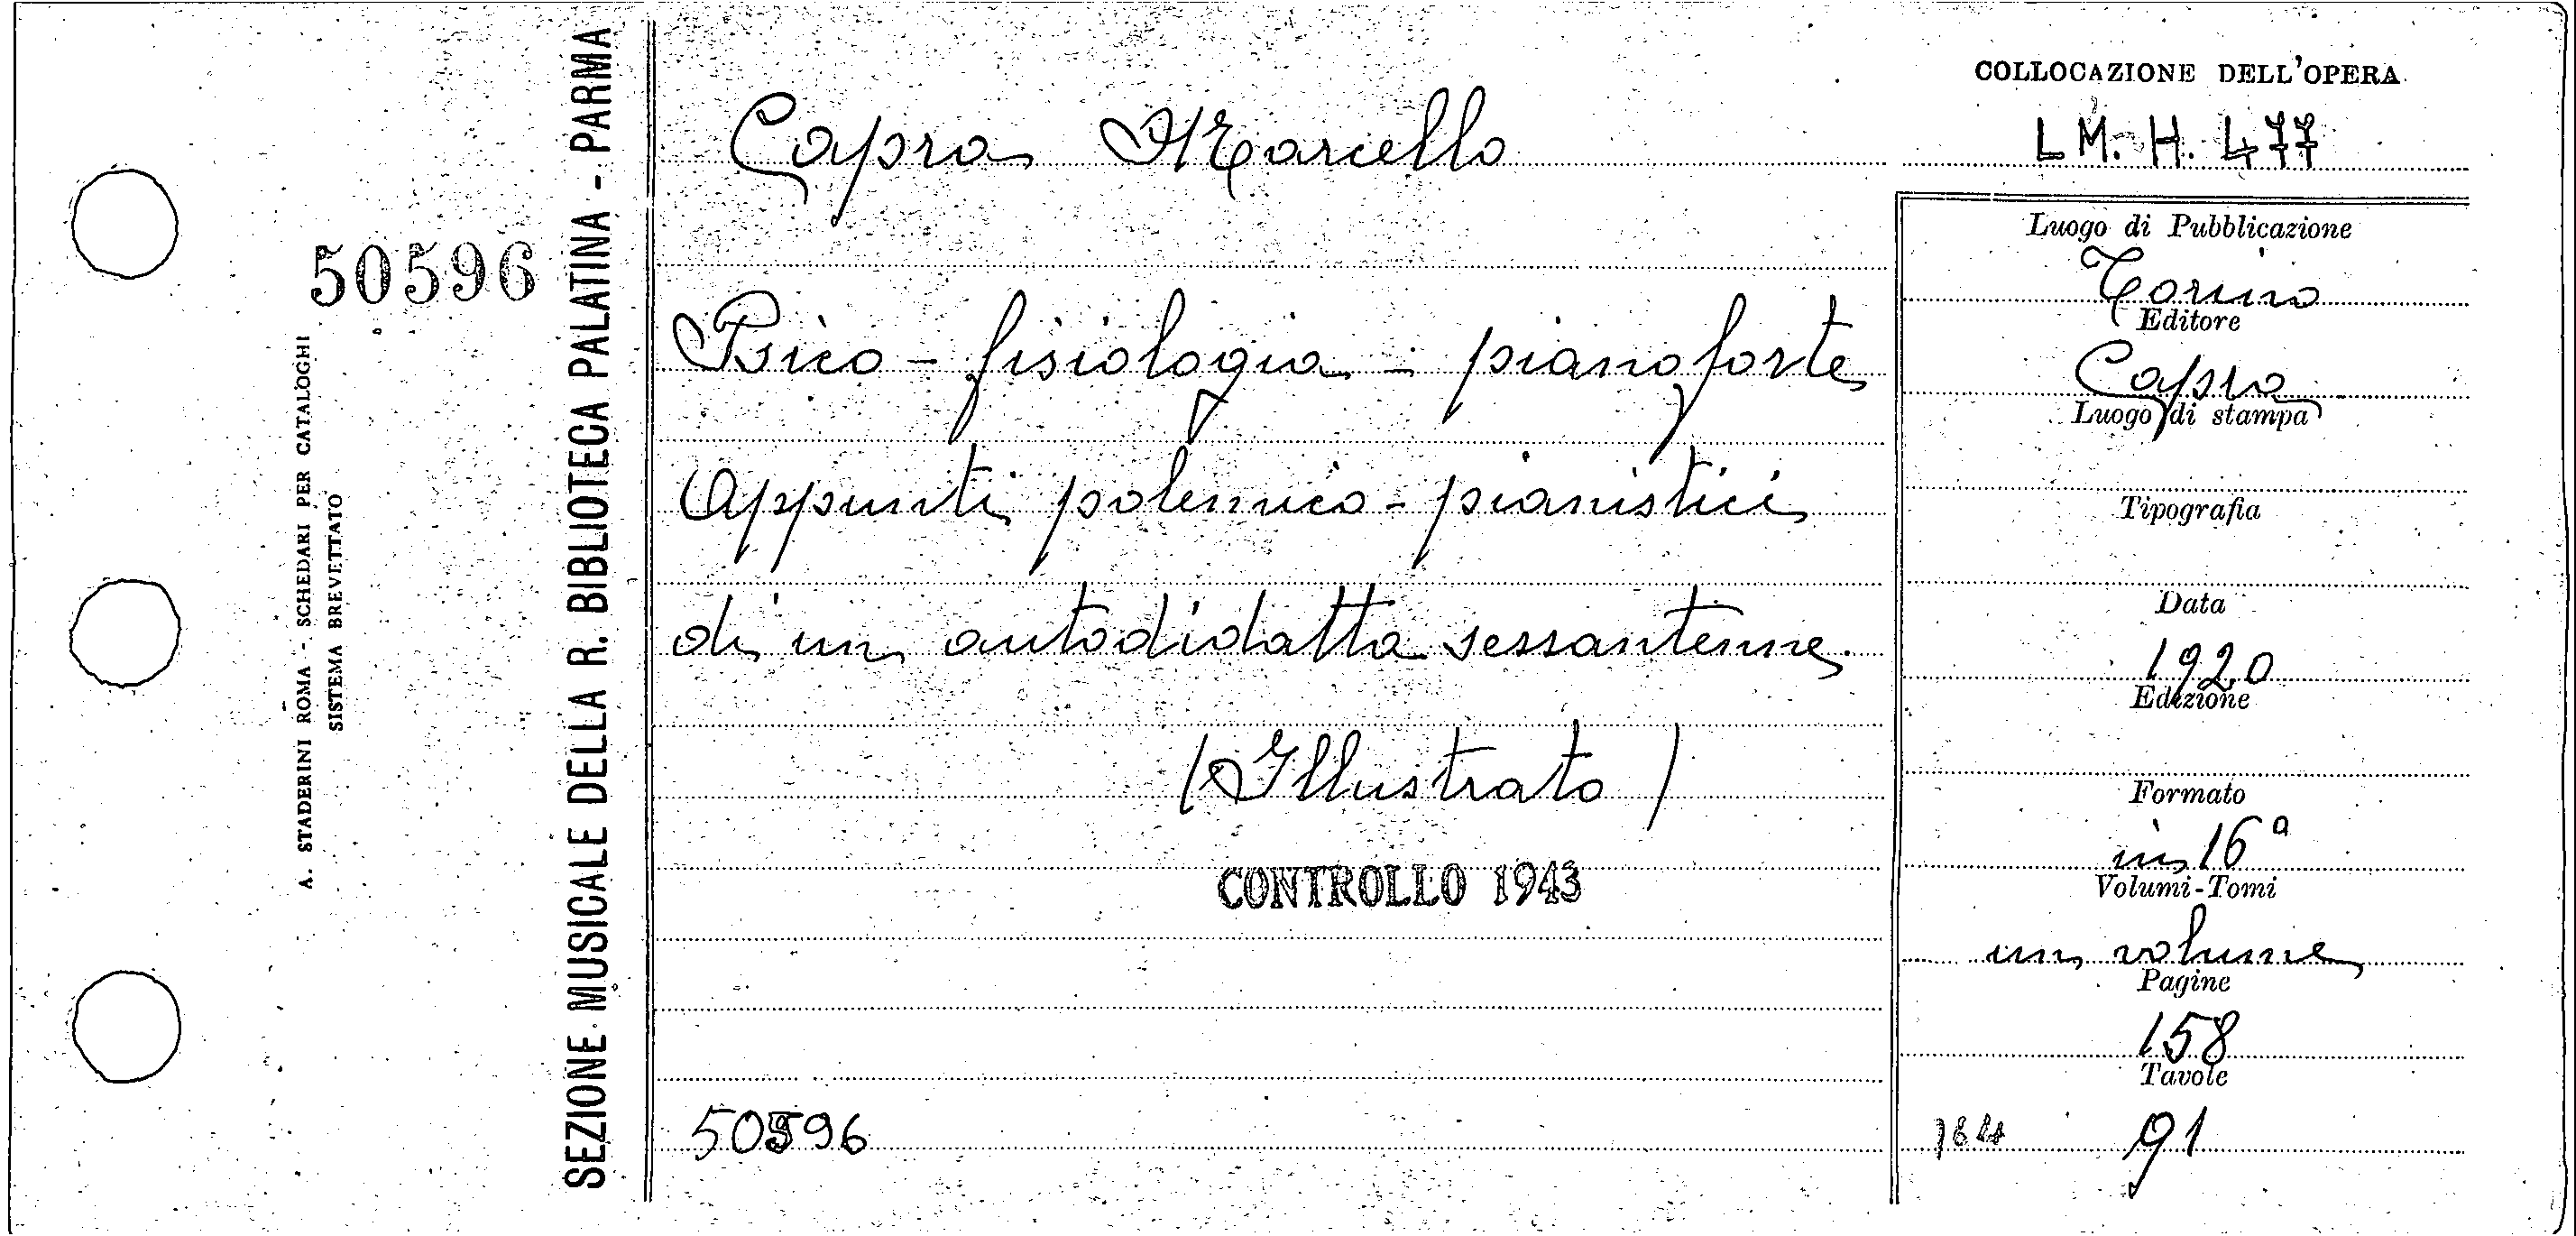 COLLOCAZIONE DELL'OPERA
Capra Marcello
LM. H. 477
50596
A. STADERINI ROMA - SCHEDARI PER CATALOGHI
SISTEMA BREVETTATO
SEZIONE MUSICALE DELLA R. BIBLIOTECA PALATINA - PARMA
Psico - fisiologia - pianoforte
Appunti polemico - pianistici
di un autodidatta sessantenne.
(Illustrato)
CONTROLLO 1943
50596
Luogo di Pubblicazione
Torino
Editore
Capra
Luogo di stampa
Tipografia
Data
1920
Edizione
Formato
in 16º
Volumi-Tomi
un volume
Pagine
158
Tavole
91